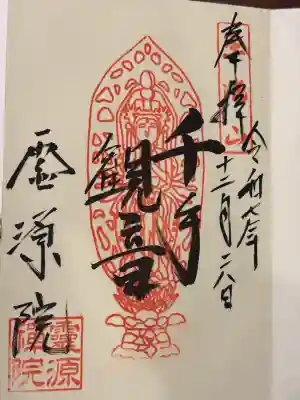 奉拝
令和七年
十二月二六日
千手
觀音
霊源院
靈源院